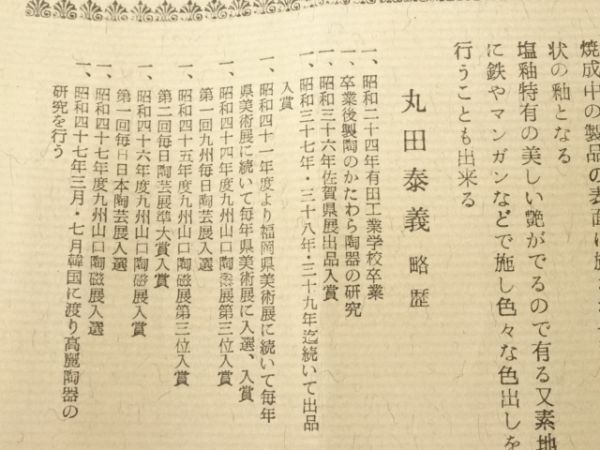 焼成中の製品の表面に
状の釉となる
塩釉特有の美しい艶がでるので有る又素地
に鉄やマンガンなどで施し色々な色出しを
行うことも出来る
丸田泰義 略歴
一、昭和二十四年有田工業学校卒業
一、卒業後製陶のかたわら陶器の研究
一、昭和三十六年佐賀県展出品入賞
一、昭和三十七年・三十八年・三十九年迄続いて出品
入賞
一、昭和四十一年度より福岡県美術展に続いて毎年
県美術展に続いて毎年県美術展に入選、入賞
一、昭和四十四年度九州山口陶磁展第三位入賞
第一回九州毎日陶芸展入選
一、昭和四十五年度九州山口陶磁展第三位入賞
第二回毎日陶芸展準大賞入賞
一、昭和四十六年度九州山口陶磁展入賞
第一回毎日日本陶芸展入選
一、昭和四十七年度九州山口陶磁展入選
一、昭和四十七年三月・七月韓国に渡り高麗陶器の
研究を行う